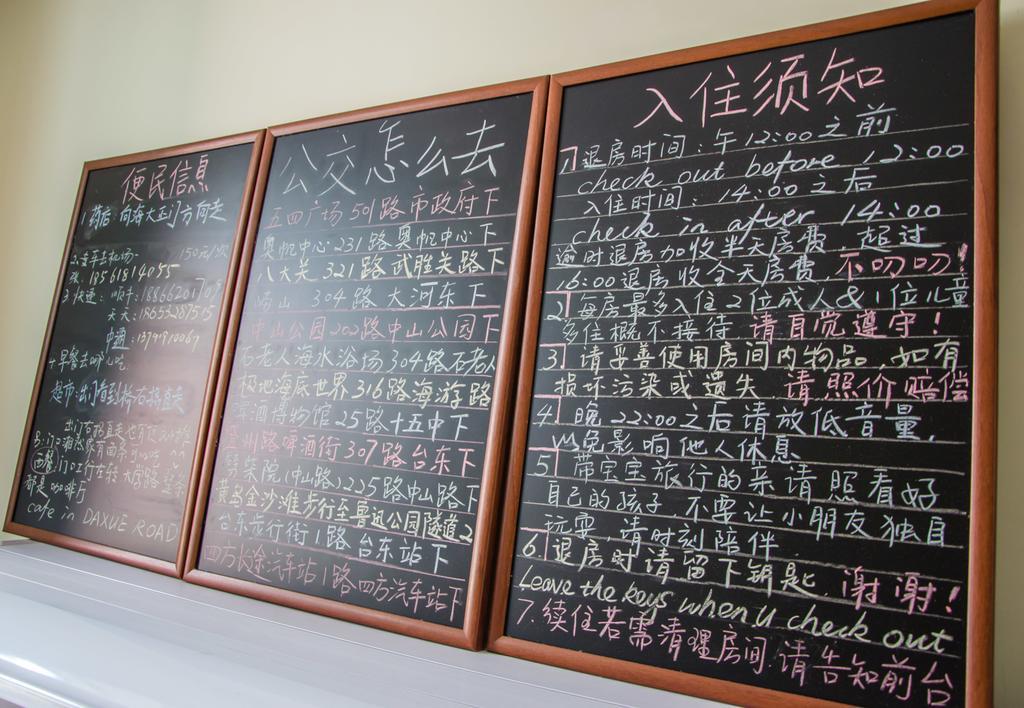 便民信息
1 药店 向海大正门方向走
2. 拿车去机场 150元/次
张. 18561814055
3 快递: 顺丰: 18866201709
天天: 18653287515
中通: 13791910067
4 早餐去哪儿吃
超市: 出门看到桥右拐直走
出门右拐直走也有
西餐: 门口左转 大学路 整条
都是咖啡厅
cafe in DAXUE ROAD
公交怎么去
五四广场 501路 市政府下
奥帆中心 231路 奥帆中心下
八大关 321路 武胜关路下
崂山 304路 大河东下
中山公园 202路 中山公园下
石老人海水浴场 304路石老人
极地海底世界 316路海游路
啤酒博物馆 25路十五中下
登州路啤酒街 307路台东下
劈柴院(中山路)225路中山路下
黄岛金沙滩步行至鲁迅公园隧道2
台东步行街 1路 台东站下
四方长途汽车站 1路四方汽车站下
入住须知
1. 退房时间: 午12:00之前
check out before 12:00
入住时间: 14:00之后
check in after 14:00
逾时退房加收半天房费. 超过
16:00退房收全天房费 不叨叨!
2 每房最多入住2位成人&1位儿童
多住概不接待 请自觉遵守!
3. 请妥善使用房间内物品. 如有
损坏污染或遗失 请照价赔偿
4. 晚22:00之后请放低音量,
以免影响他人休息
5. 带宝宝旅行的亲请照看好
自己的孩子. 不要让小朋友独自
玩耍. 请时刻陪伴
6. 退房时请留下钥匙. 谢谢!
Leave the keys when u check out
7. 续住若需清理房间.请告知前台